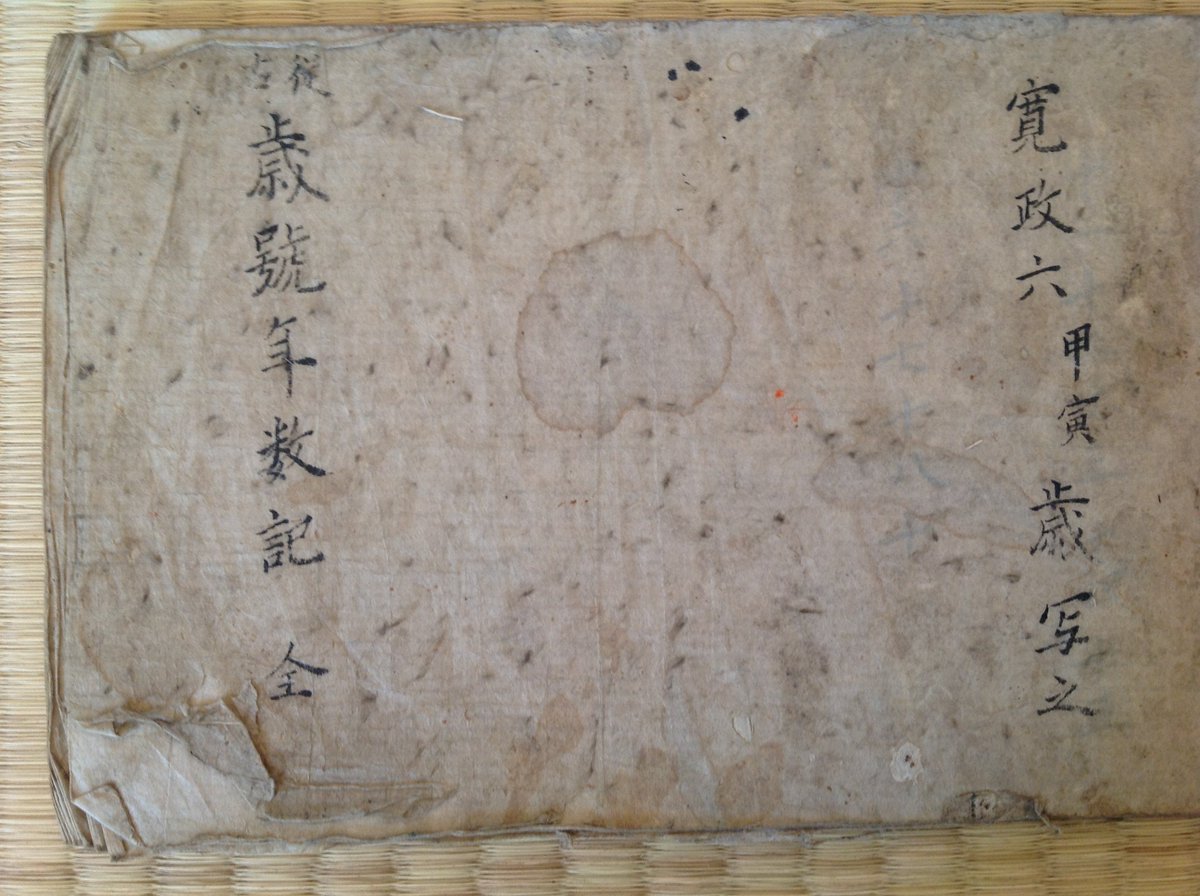 寛政六甲寅歳写之
従古歳號年数記 全